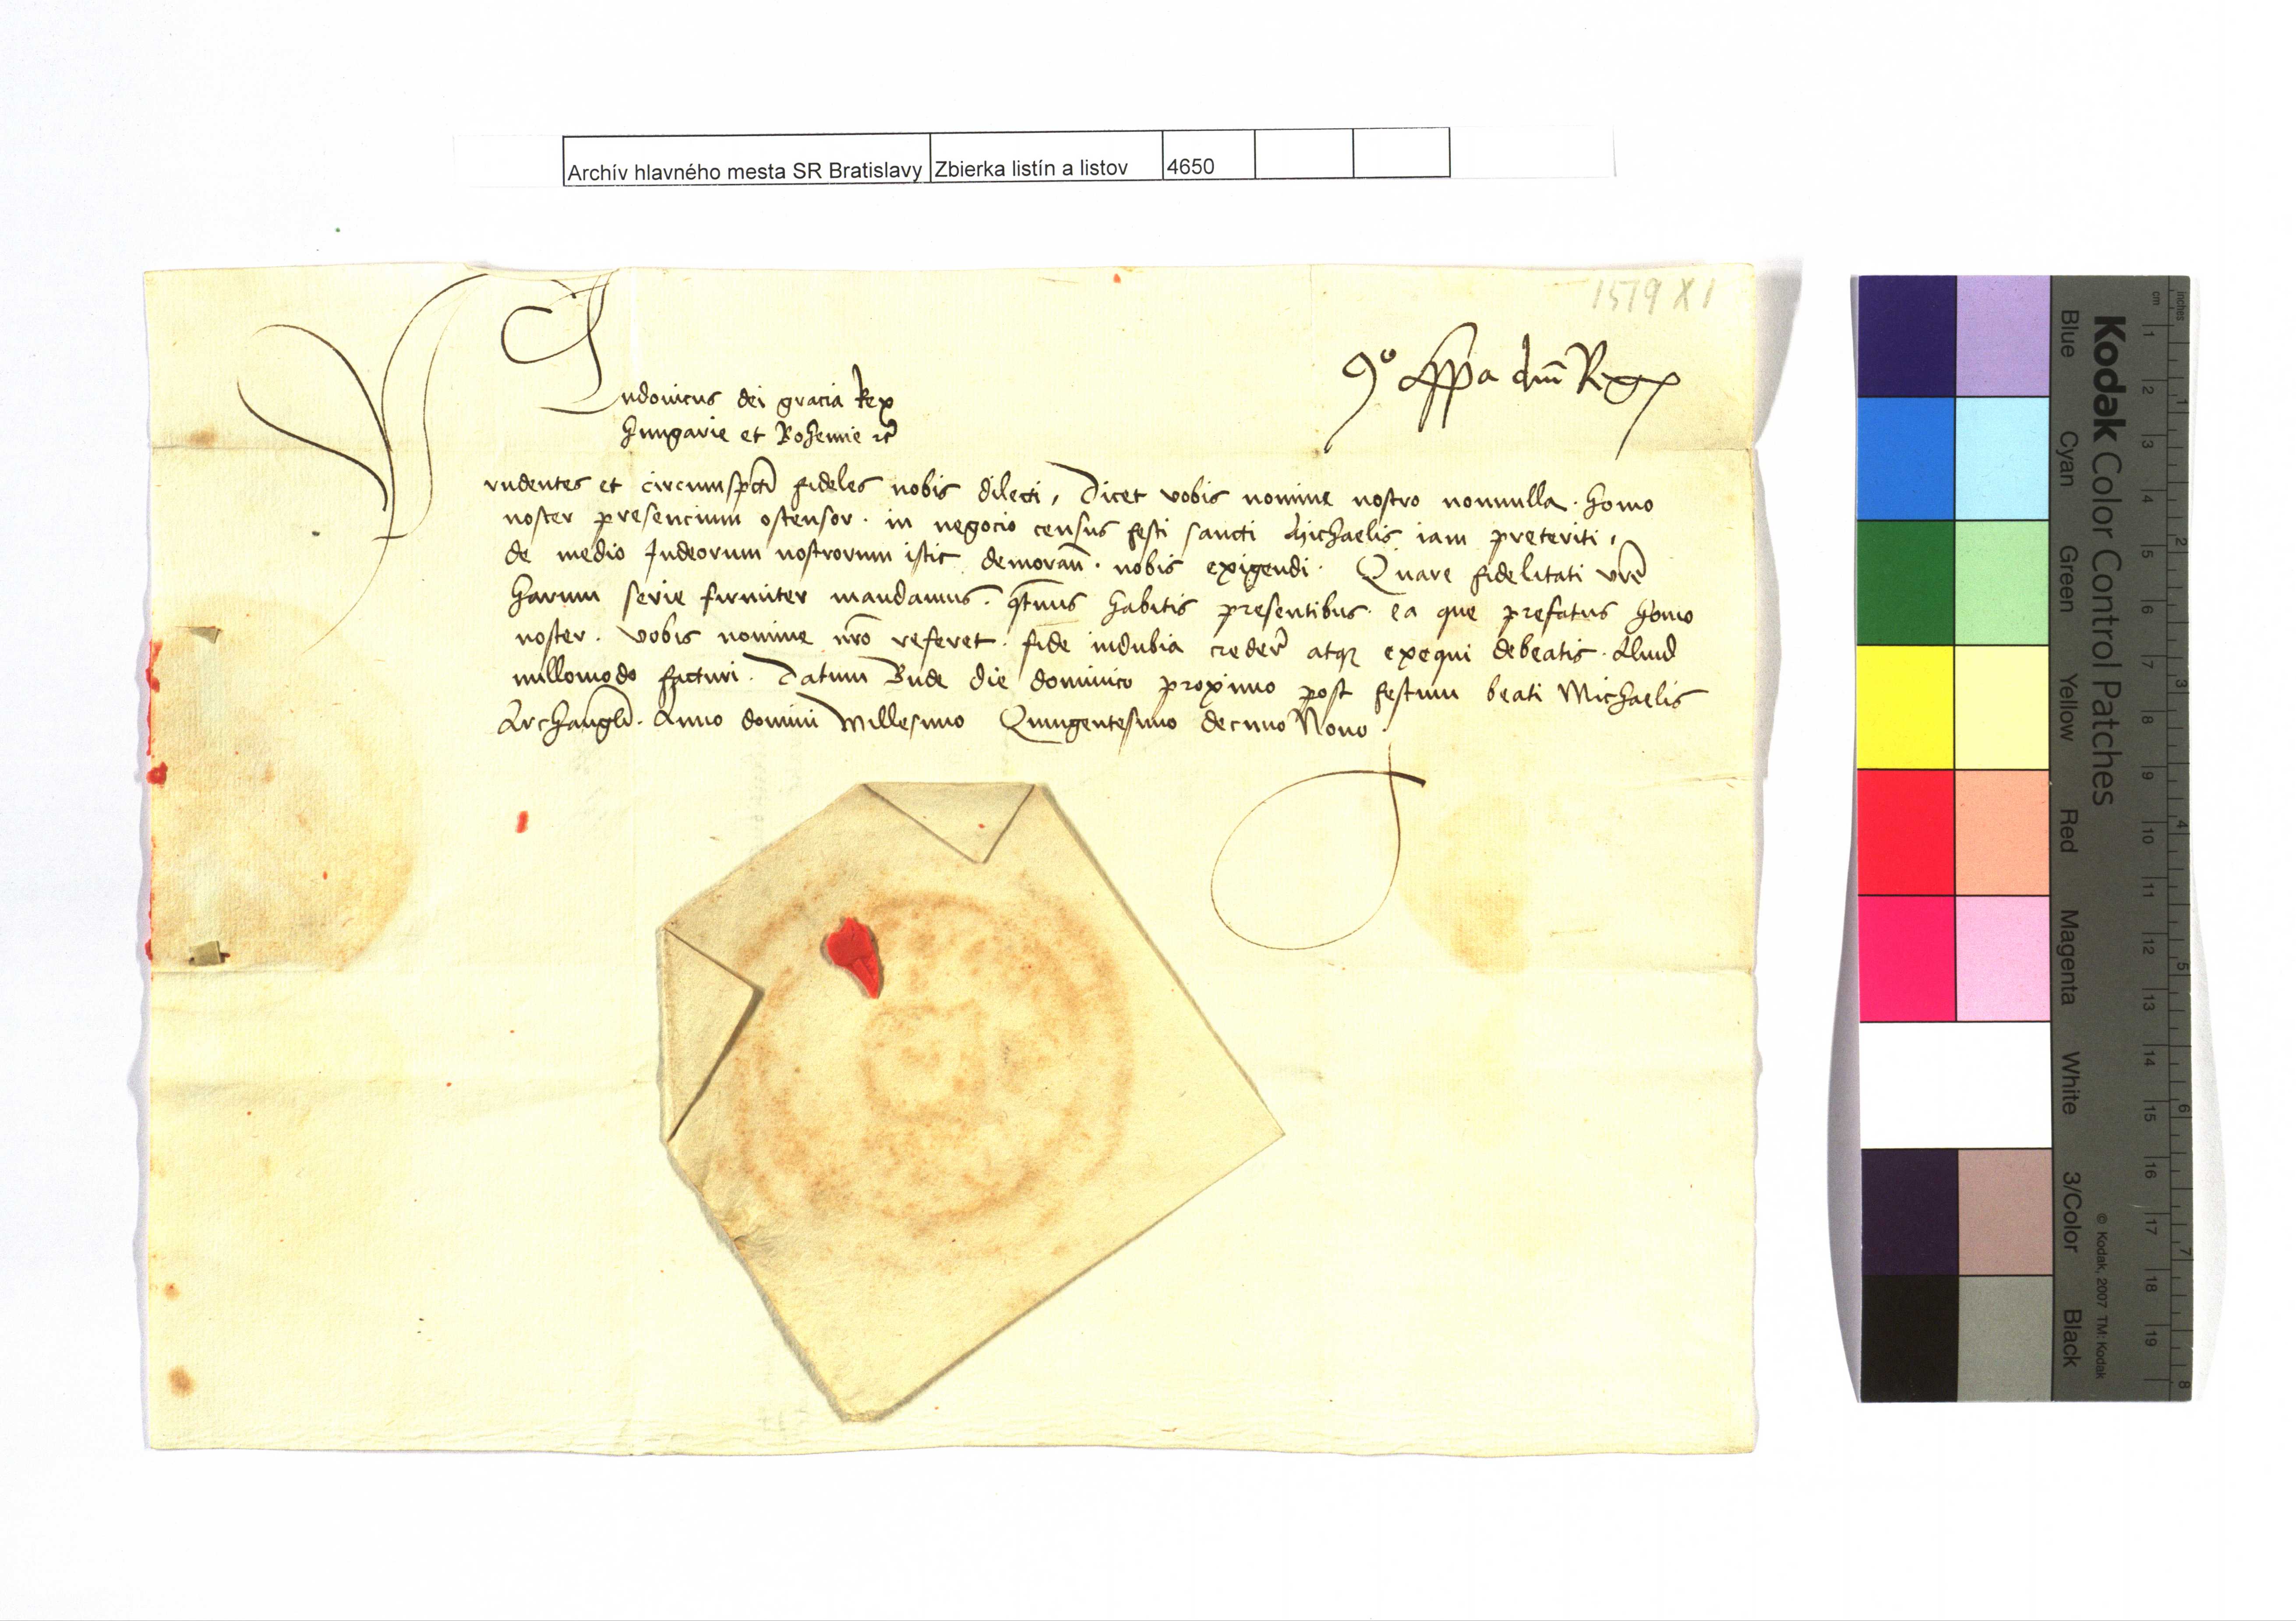 Archív hlavného mesta SR Bratislavy Zbierka listín a listov 4650
1519 XI
Ludouicus dei gracia Rex
Hungarie et Bohemie rc̃
Co͂ppa dni͂ Regꝭ
Prudentes et circumspcti͂ fideles nobis dilecti, Dicet vobis nomine nostro nonnulla. homo
noster presencium ostensor. in negocio census festi sancti Michaelis iam preteriti,
de medio Judeorum nostrorum istic demoran͂. nobis exigendi. Quare fidelitati vr͂e
harum serie firmiter mandamus. qt͂nus habitis presentibus. ea que prefatus homo
noster. vobis nomine nr͂o referet. fide indubia creder͂ atqꝫ exequi debeatis. Aliud
nullomodo facturi. Datum Bude die dominico proximo post festum beati Michaelis
Archangli͂. Anno domini Millesimo Quingentesimo decimo Nono.
Kodak Color Control Patches
Blue Cyan Green Yellow Red Magenta White 3/Color Black
© Kodak, 2007 TM: Kodak
inches 1 2 3 4 5 6 7 8
cm 1 2 3 4 5 6 7 8 9 10 11 12 13 14 15 16 17 18 19